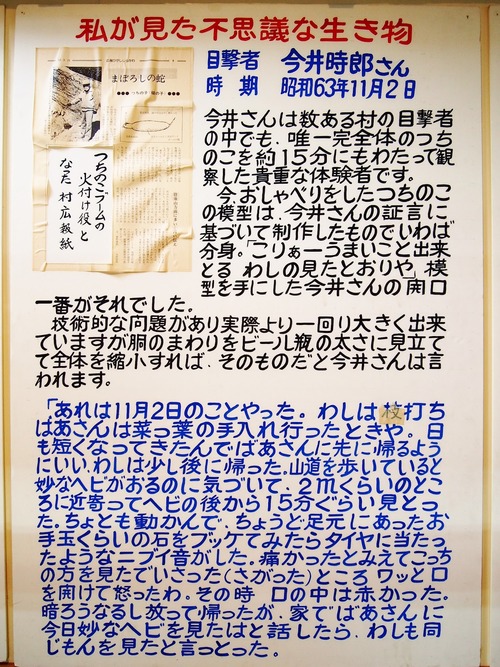 私が見た不思議な生き物
目撃者 今井時郎さん
時 期 昭和63年11月2日
まぼろしの蛇
つちのこブームの
火付け役と
なった 村広報紙
今井さんは数ある村の目撃者
の中でも、唯一完全体のつち
のこを約15分にもわたって観
察した貴重な体験者です。
今、おしゃべりをしたつちのこ
の模型は、今井さんの証言に
基づいて制作したものでいわば
分身。「こりぁーうまいこと出来
とる わしの見たとおりや」模
型を手にした今井さんの開口
一番がそれでした。
技術的な問題があり実際より一回り大きく出来
ていますが胴のまわりをビール瓶の太さに見立て
て全体を縮小すれば、そのものだと今井さんは言
われます。
「あれは11月2日のことやった。わしは枝打ち
ばあさんは菜っ葉の手入れ行ったときや。日
も短くなってきたんでばあさんに先に帰るよう
にいい、わしは少し後に帰った。山道を歩いていると
妙なヘビがおるのに気づいて、2mくらいのとこ
ろに近寄ってヘビの後から15分ぐらい見とっ
た。ちょとも動かんで、ちょうど足元にあったお
手玉くらいの石をブッケてみたらタイヤに当たっ
たようなニブイ音がした。痛かったとみえてこっち
の方を見たでいさった(さがった)ところ ワッと口
を開けて怒ったわ。その時 口の中は赤かった。
暗ろうなるし放って帰ったが、家でばあさんに
今日妙なヘビを見たはと話したら、わしも同
じもんを見たと言っとった。